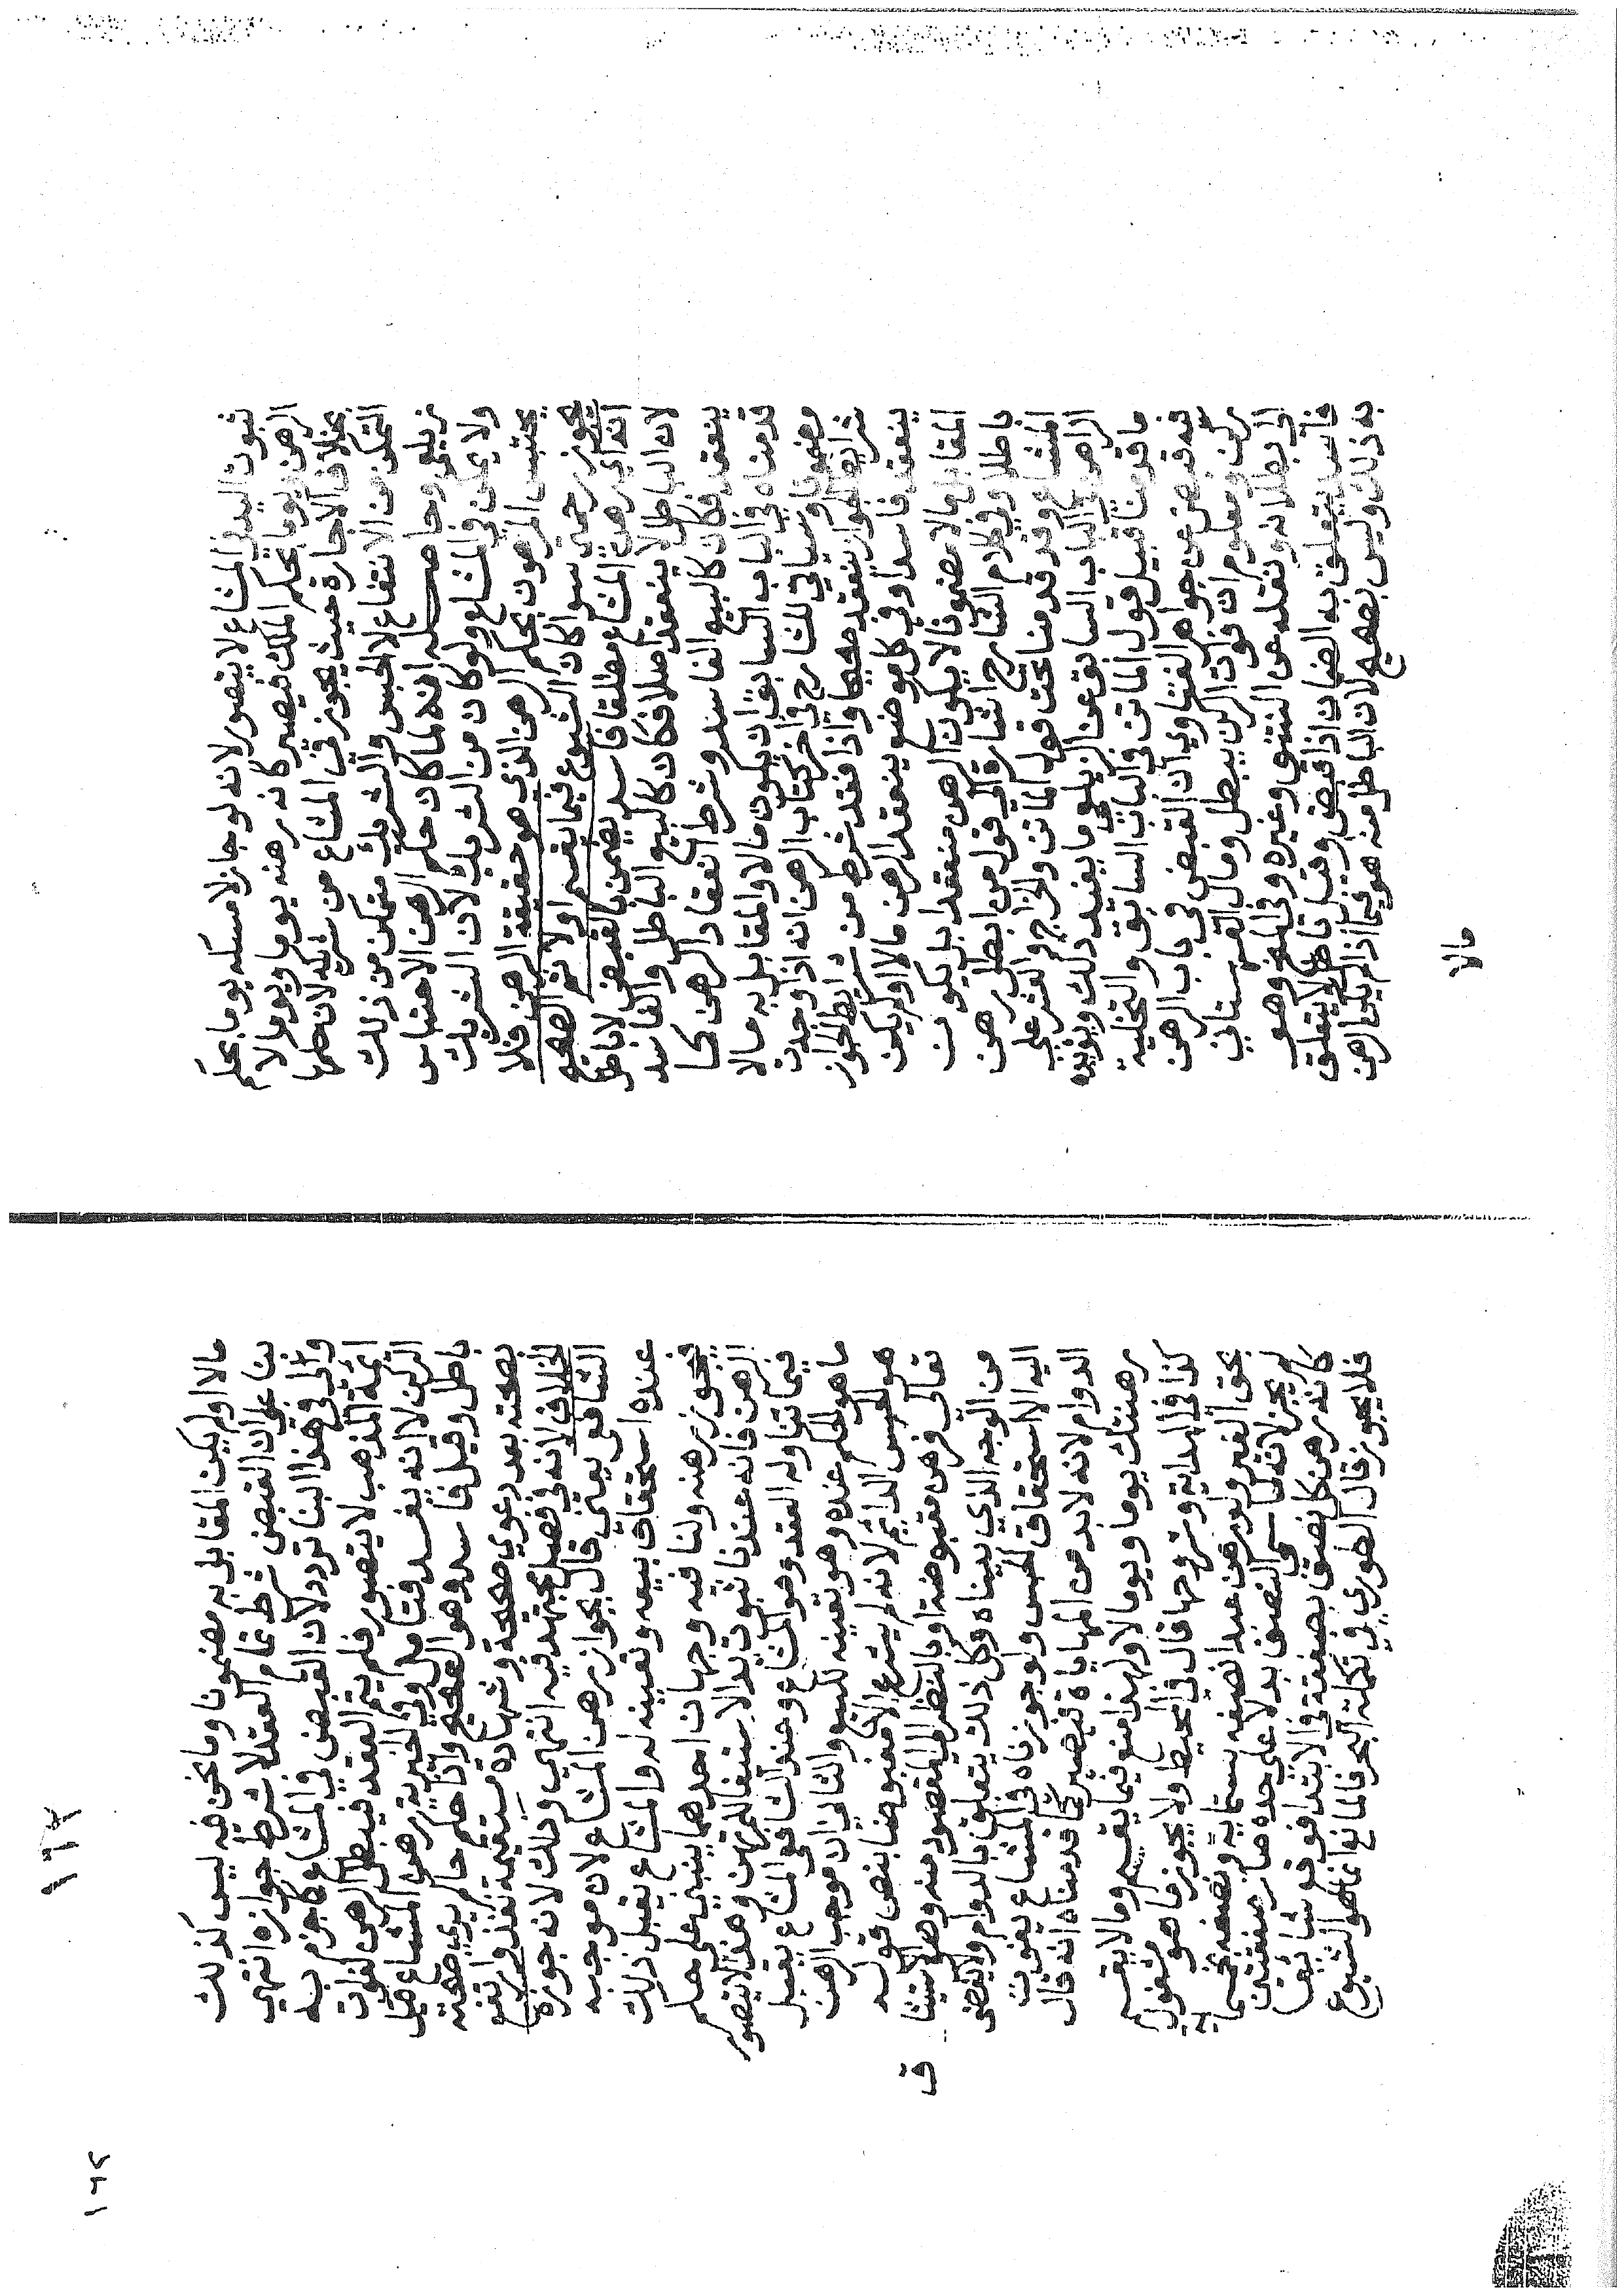 ثبوت اليد في المشاع لا يتصور لانه لو جاز لامسكه يوما بحكم
الرهن ويوما بحكم الملك فيصير كانه رهنه يوما ويوما لا
بخلاف الاجارة حيث يجوز في المشاع من شريكه لان حكمها
التمكن من الانتفاع لا الحبس والشريك متمكن من ذلك
زيلعي وحاصله انه لما كان حكم الرهن الاحتباس
ولا يمكن في المشاع ولو كان من الشريك لان الشريك
يحتبس المرهون بحكم الرهن الذي هو حقيقة الرهن فلا
يجوز رحمتي سوا كان الشيوع فيما يقسم اولا ثم الصحيح
انه اي رهن المشاع مطلقا فاسد يضمن بالقبض لا باطل
لان الباطل لا ينعقد اصلا فكان كالبيع الباطل والفاسد
ينعقد فكان كالبيع الفاسد وشرط انعقاد الرهن كما
قدمناه في الباب السابق ان يكون مالا والمقابل به مالا
وضمونا وسياتي للشارح في اخر كتاب الرهن انه اذا وجدت
شرايط الجواز ينعقد صحيحا واذا فقد شرط من شرايط الجواز
ينعقد فاسدا وفي كل موضع ينعقد الرهن مالا اولم يكن
المقابل مالا مضمونا لا يكون الرهن منعقدا بل يكون
باطلا وفي كلام الشارح اشارة الي قول من ابطل رهن
المشاع وقد قدمنا تحت قول الماتن والخراج والعشر علي
الراهن في الباب السابق عن الزيلعي ما يفيد ذلك ويؤيده
ما قدمنا قبيل قول الماتن في الباب السابق والتخلية
فيه قبض عن جواهر الفتاوي ان القبض في باب الرهن
ركن ومعلوم ان فوات الركن يبطل ومال القهستاني
الي بطلانه ونقله عن النتف وغيره وفي المنح وهو
فاسد يتعلق به الضمان اذا قبض وقيل باطل لا يتعلق
به ذلك وليس بصحيح لان الباطل منه هو فيما اذا لم يكن الرهن
مالا
١٦٢
١٦٢
مالا اولم يكن المقابل به مضمونا وما نحن فيه ليس كذلك
بنا علي ان القبض شرط تمام العقد لا شرط جوازه انتهي
ولي في هذا البنا تردد لان القبض في المشاع كما جزم به
ائمة المذهب لا يتصور فلم يتم العقد فيبطل الرهن لفوات
الركن لا انه يفسد فتامل وفي الخيرية رهن المشاع قيل
باطل وقيل فاسد وهو الصحيح واذا حكم حاكم يري صحته
بصحته بعد دعوي صحيحة وشهادة مستقيمة نفذ وارتفع
الخلاف لانه في فصل مجتهد فيه انتهي وذلك لانه جوزه
الشافعي يعني قال بجواز رهن المشاع لان موجبه
عنده استحقاق بيعه وتعيينه له والمشاع يقبل ذلك
فيجوز رهنه ولنا فيه وجهان احدهما يبتني علي حكم
الرهن فانه عندنا ثبوت يد الاستيفا للمرتهن وهذا لا يتصور
فيما تناوله العقد وهو المشاع وعند الشافعي المشاع يقبل
ما هو الحكم عنده وهو تعيينه للبيع والثاني ان موجب الرهن
هو الحبس الدائم لانه لم يشرع الا مقبوضا بنص قوله
تعالي فرهن مقبوضة او بالنظر الي المقصود منه وهو الاستيثاق
من الوجه الذي بيناه وكل ذلك يتعلق بالدوام ولا يفضي
اليه الا استحقاق الحبس ولو جوزناه في المشاع يفوت
الدوام لانه لابد من المهاياة فيصير كما قدمناه انه قال
رهنتك يوما ويوما لا ولهذا منع فيما يقسم وما لا يقسم
كذا في الهداية وشروحها قال في المحيط ولا يجوز ما هو مشغول
بحق الغير ولو رهن عبدا نصفه بستماية ونصفه بخمسماية
لم يجز لانه لما سمي النصف بدلا علي حده صار صفقتين
كانه رهن كل نصف بصفقة في الابتدا فوقع شايعا
فلا يجوز قال الطوري في تكملة البحر فالمانع انما هو الشيوع